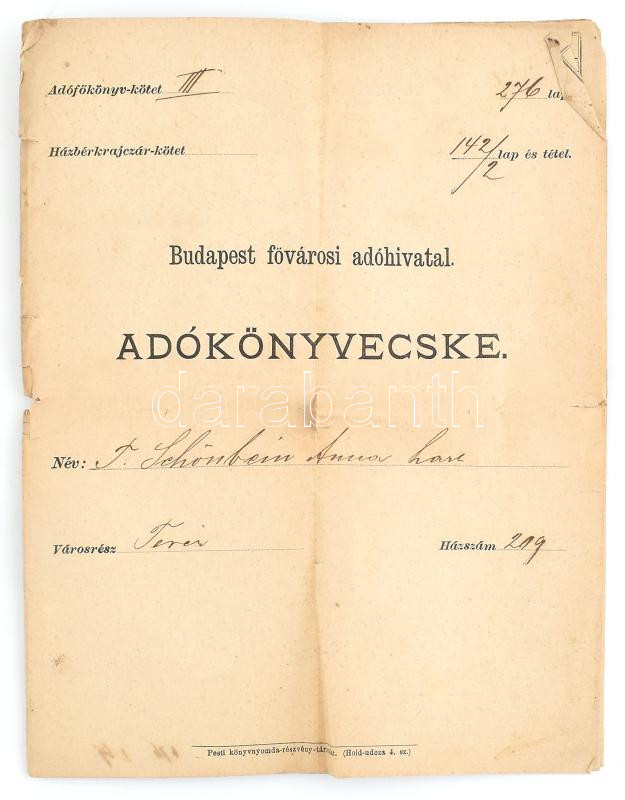 Adófőkönyv-kötet III 276 lap
Házbérkrajczár-kötet 142/2 lap és tétel.
Budapest fővárosi adóhivatal.
ADÓKÖNYVECSKE.
darabanth
Név: T. Schönbein Anna
Városrész Teréz Házszám 209
Pesti könyvnyomda-részvény-társulat. (Hold-udcza 4. sz.)